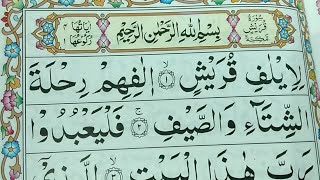 سُورَةُ قُرَيْشٍ
بِسْمِ اللهِ الرَّحْمٰنِ الرَّحِيْمِ
لِاِيْلٰفِ قُرَيْشٍ ۝١ اٖلٰفِهِمْ رِحْلَةَ
الشِّتَآءِ وَالصَّيْفِ ۝٢ فَلْيَعْبُدُوْا
رَبَّ هٰذَا الْبَيْتِ ۝٣ الَّذِيْٓ